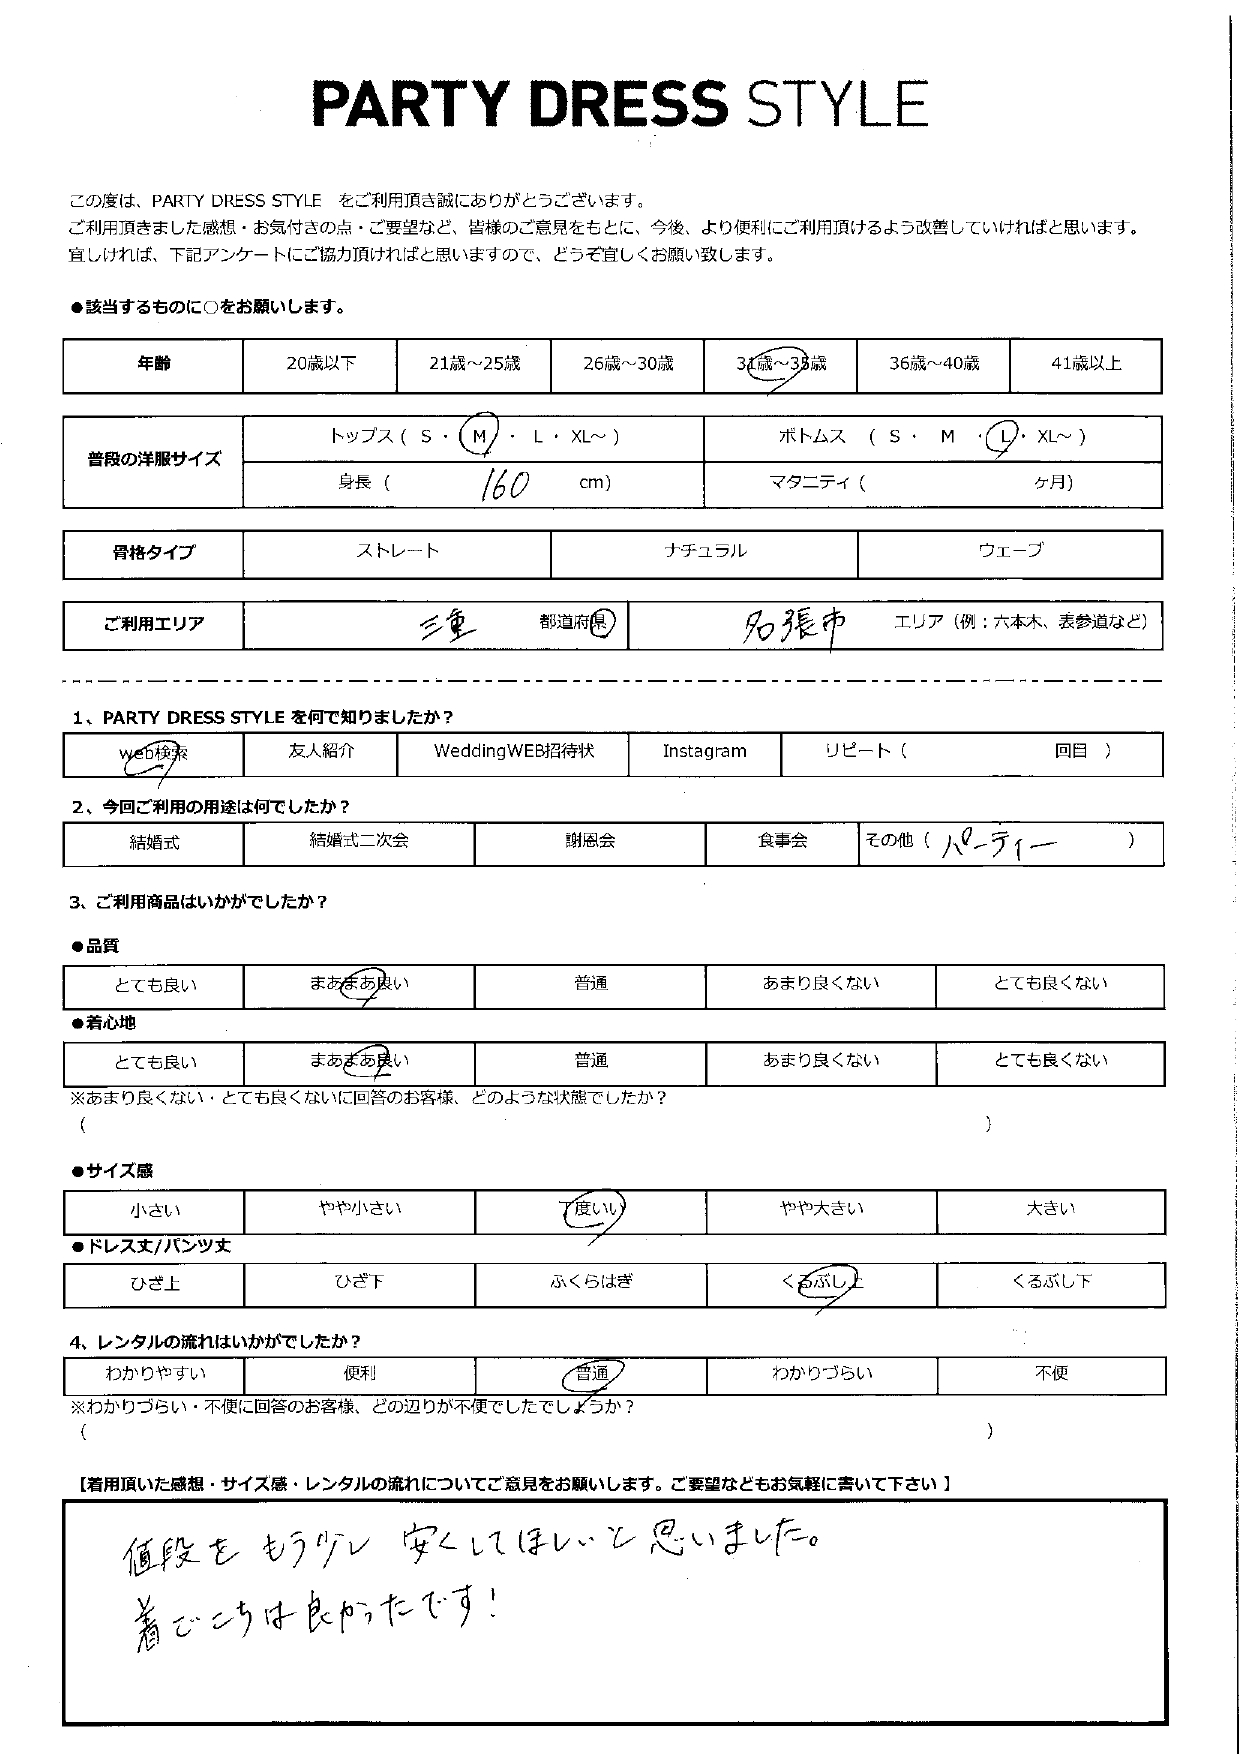 PARTY DRESS STYLE
この度は、PARTY DRESS STYLE をご利用頂き誠にありがとうございます。
ご利用頂きました感想・お気付きの点・ご要望など、皆様のご意見をもとに、今後、より便利にご利用頂けるよう改善していければと思います。
宜しければ、下記アンケートにご協力頂ければと思いますので、どうぞ宜しくお願い致します。
●該当するものに○をお願いします。
年齢 20歳以下 21歳～25歳 26歳～30歳 31歳～35歳 36歳～40歳 41歳以上
普段の洋服サイズ トップス ( S ・ M ・ L ・ XL～ ) ボトムス ( S ・ M ・ L ・ XL～ )
身長 ( 160 cm) マタニティ ( ヶ月)
骨格タイプ ストレート ナチュラル ウェーブ
ご利用エリア 三重 都道府県 名張市 エリア（例：六本木、表参道など）
1、PARTY DRESS STYLE を何で知りましたか？
web検索 友人紹介 WeddingWEB招待状 Instagram リピート（ 回目 ）
2、今回ご利用の用途は何でしたか？
結婚式 結婚式二次会 謝恩会 食事会 その他（ パーティー ）
3、ご利用商品はいかがでしたか？
●品質
とても良い まあまあ良い 普通 あまり良くない とても良くない
●着心地
とても良い まあまあ良い 普通 あまり良くない とても良くない
※あまり良くない・とても良くないに回答のお客様、どのような状態でしたか？
( )
●サイズ感
小さい やや小さい 丁度いい やや大きい 大きい
●ドレス丈/パンツ丈
ひざ上 ひざ下 ふくらはぎ くるぶし上 くるぶし下
4、レンタルの流れはいかがでしたか？
わかりやすい 便利 普通 わかりづらい 不便
※わかりづらい・不便に回答のお客様、どの辺りが不便でしたでしょうか？
( )
【着用頂いた感想・サイズ感・レンタルの流れについてご意見をお願いします。ご要望などもお気軽に書いて下さい 】
値段を もう少し 安くしてほしいと思いました。
着ごこちは良かったです！